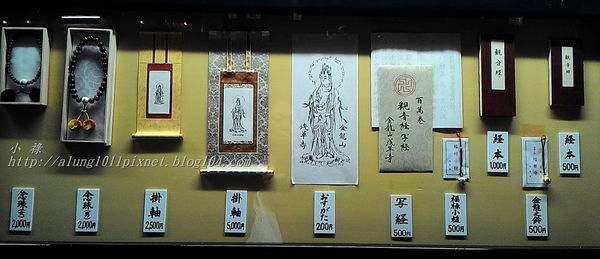 観音経
観音経
金龍山
浅草寺
百萬巻
観音経写経
金龍山浅草寺
経本
1,000円
経本
500円
小 祿
http://alung1011pixnet.blog101.com
念珠(大)
2,000円
念珠(男)
2,000円
掛軸
2,500円
掛軸
5,000円
おすがた
200円
写経
500円
福禄小槌
500円
金龍之鈴
500円